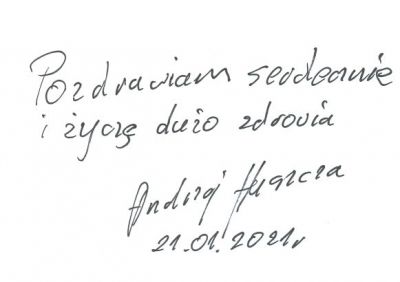 Pozdrawiam serdecznie
i życzę dużo zdrowia
Andrzej Huszcza
21.01.2021r